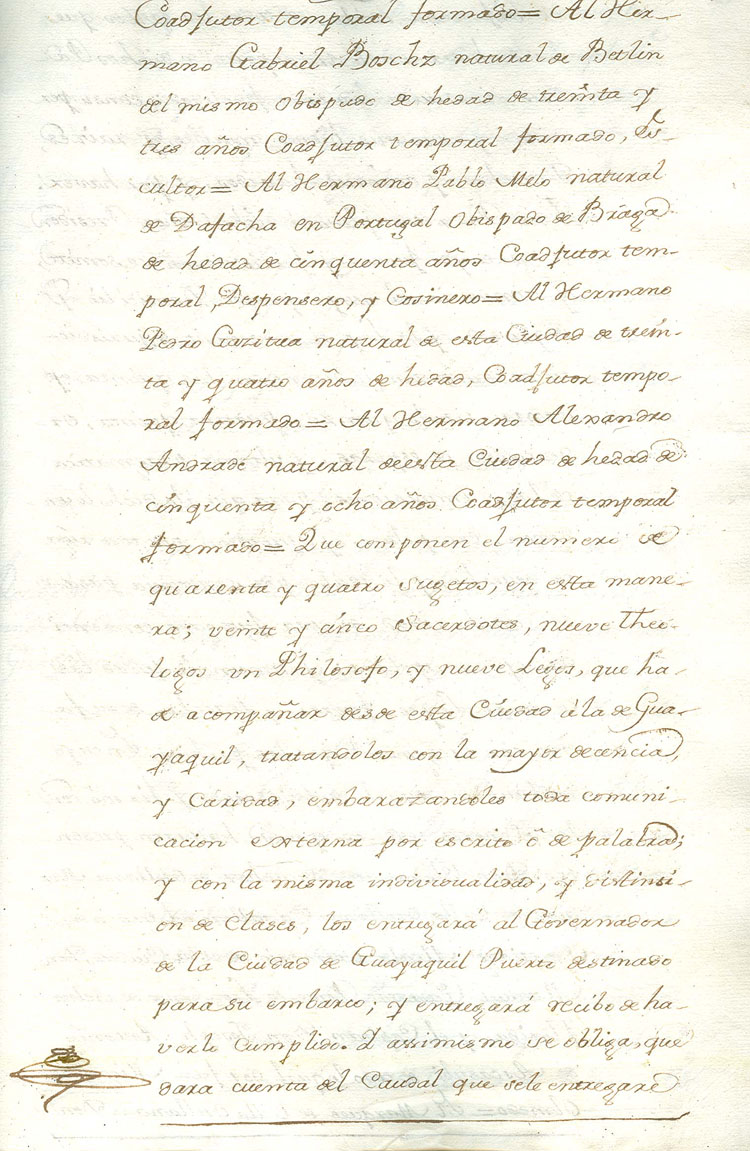 Coadjutor temporal formado= Al Her-
mano Gabriel Boschz natural de Betlin
del mismo Obispado de hedad de treinta y
tres años Coadjutor temporal formado, Es-
cultor= Al Hermano Pablo Melo natural
de Dafacha en Portugal Obispado de Braga
de hedad de cinquenta años Coadjutor tem-
poral, Despensero, y Cosinero= Al Hermano
Pedro Gazitua natural de esta Ciudad de trein-
ta y quatro años de hedad, Coadjutor tempo-
ral formado= Al Hermano Alexandro
Andrade natural de esta Ciudad de hedad de
cinquenta y ocho años Coadjutor temporal
formado= Que componen el numero de
quarenta y quatro sugetos, en esta mane-
ra; veinte y cinco Sacerdotes, nueve Theo-
logos un Philosofo, y nueve Legos, que ha
de acompañar desde esta Ciudad à la de Gua-
yaquil, tratandolos con la mayor decencia,
y Caridad, embarazandoles toda comuni-
cacion externa por escrito ô de palabra;
y con la misma individualidad, y distinsi-
on de clases, los entregará al Governador
de la Ciudad de Guayaquil Puerto destinado
para su embarco; y entregará recibo de ha-
verlo cumplido. Y assimismo se obliga, que
dara cuenta del Caudal que sele entregare